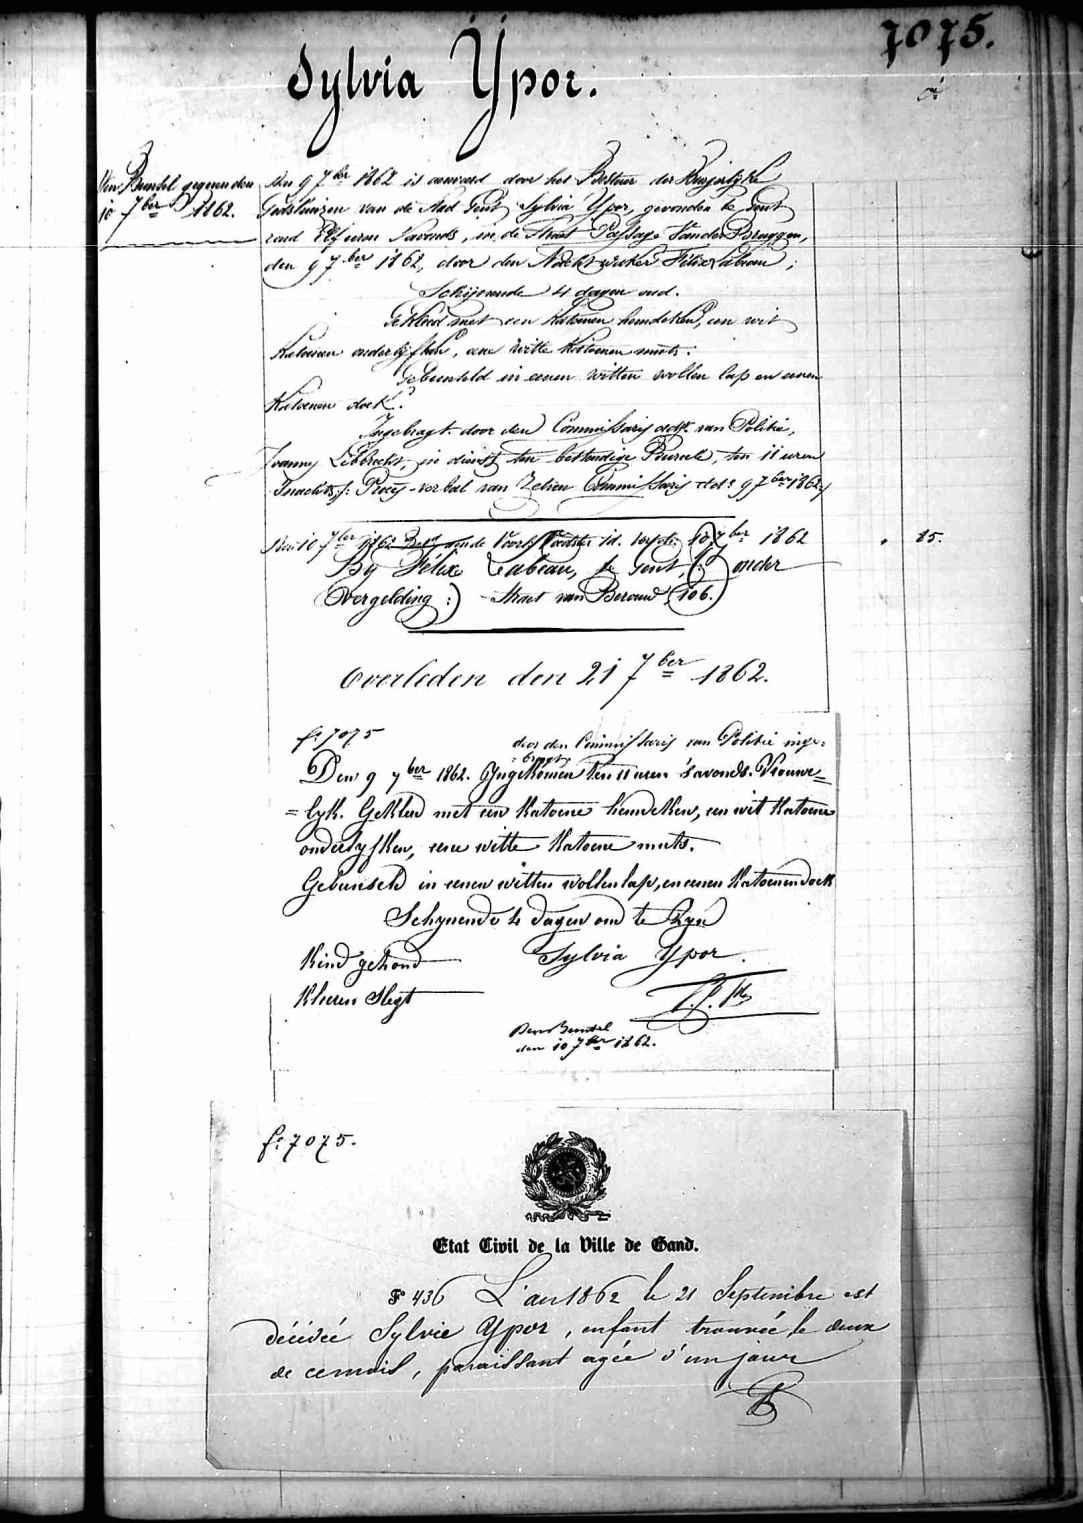 7075.
Sylvia Ypor.
Bundel gegeven den
10 7ber 1862.
Den 9 7ber 1862 is aanveerd door het Bestuer der Burgerlyke
Godshuizen van de Stad Gent, Sylvia Ypor, gevonden te Gent
rond Elf uren s'avonds, in de Straat Passage Vander Bruggen,
den 9 7ber 1862, door den Nachtwaker Félix Labeau;
Schijnende 4 dagen oud.
Gekleed met een katoenen hemdeken, een wit
Katoenen onderlyfken, eene witte Katoenen muts.
Gebunseld in eenen witten wollen lap en eenen
Katoenen doek.
Ingebragt door den Commissaris adkt van Politie,
in dienst ten bestendige Bureele, ten 11 uren
Snachts, Proces-verbal van Zelven Commissaris det: 9 7ber 1862
10 7ber 1862 10 7ber 1862
By Félix Labeau, te Gent, onder
Vergelding :) Straet van Berouw, 106.
15.
Overleden den 21 7ber 1862.
f: 7075
door den Commissaris van Politie inge=
=bragt
Den 9 7ber 1862. Ingekomen ten 11 uren s'avonds. Vrouwe=
=lyk. Gekleed met een Katoene hemdeken, een wit Katoene
onderlyfken, eene witte Katoene muts.
Gebunseld in eenen witten wollen lap, en eenen Katoenen doek
Schynende 4 dagen oud te Zyn
Kind gezond Sylvia Ypor.
Kleeren Slegt
Bundel
den 10 7ber 1862.
f: 7075.
Etat Civil de la Ville de Gand.
F° 436 L'an 1862 le 21 Septembre est
décédée Sylvie Ypor, enfant trouvée le deux
de ce mois, paraissant agée d'un jour